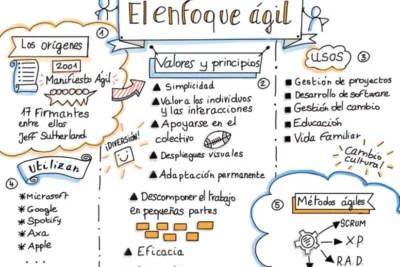 El enfoque ágil
1
Los orígenes
2001
Manifiesto Ágil
17 Firmantes
entre ellos
Jeff Sutherland
¡DIVERSIÓN!
Valores y principios
2
Simplicidad
Valora los individuos
y las interacciones
Apoyarse en el
colectivo
Despliegues visuales
Adaptación permanente
Descomponer el trabajo
en pequeñas partes
Eficacia
USOS
3
Gestión de proyectos
Desarrollo de software
Gestión del cambio
Educación
Vida familiar
Cambio
cultural
4
Utilizan
*Microsoft
*Google
*Spotify
*Axa
*Apple
...
5
Métodos ágiles
SCRUM
X.P.
R.A.D.